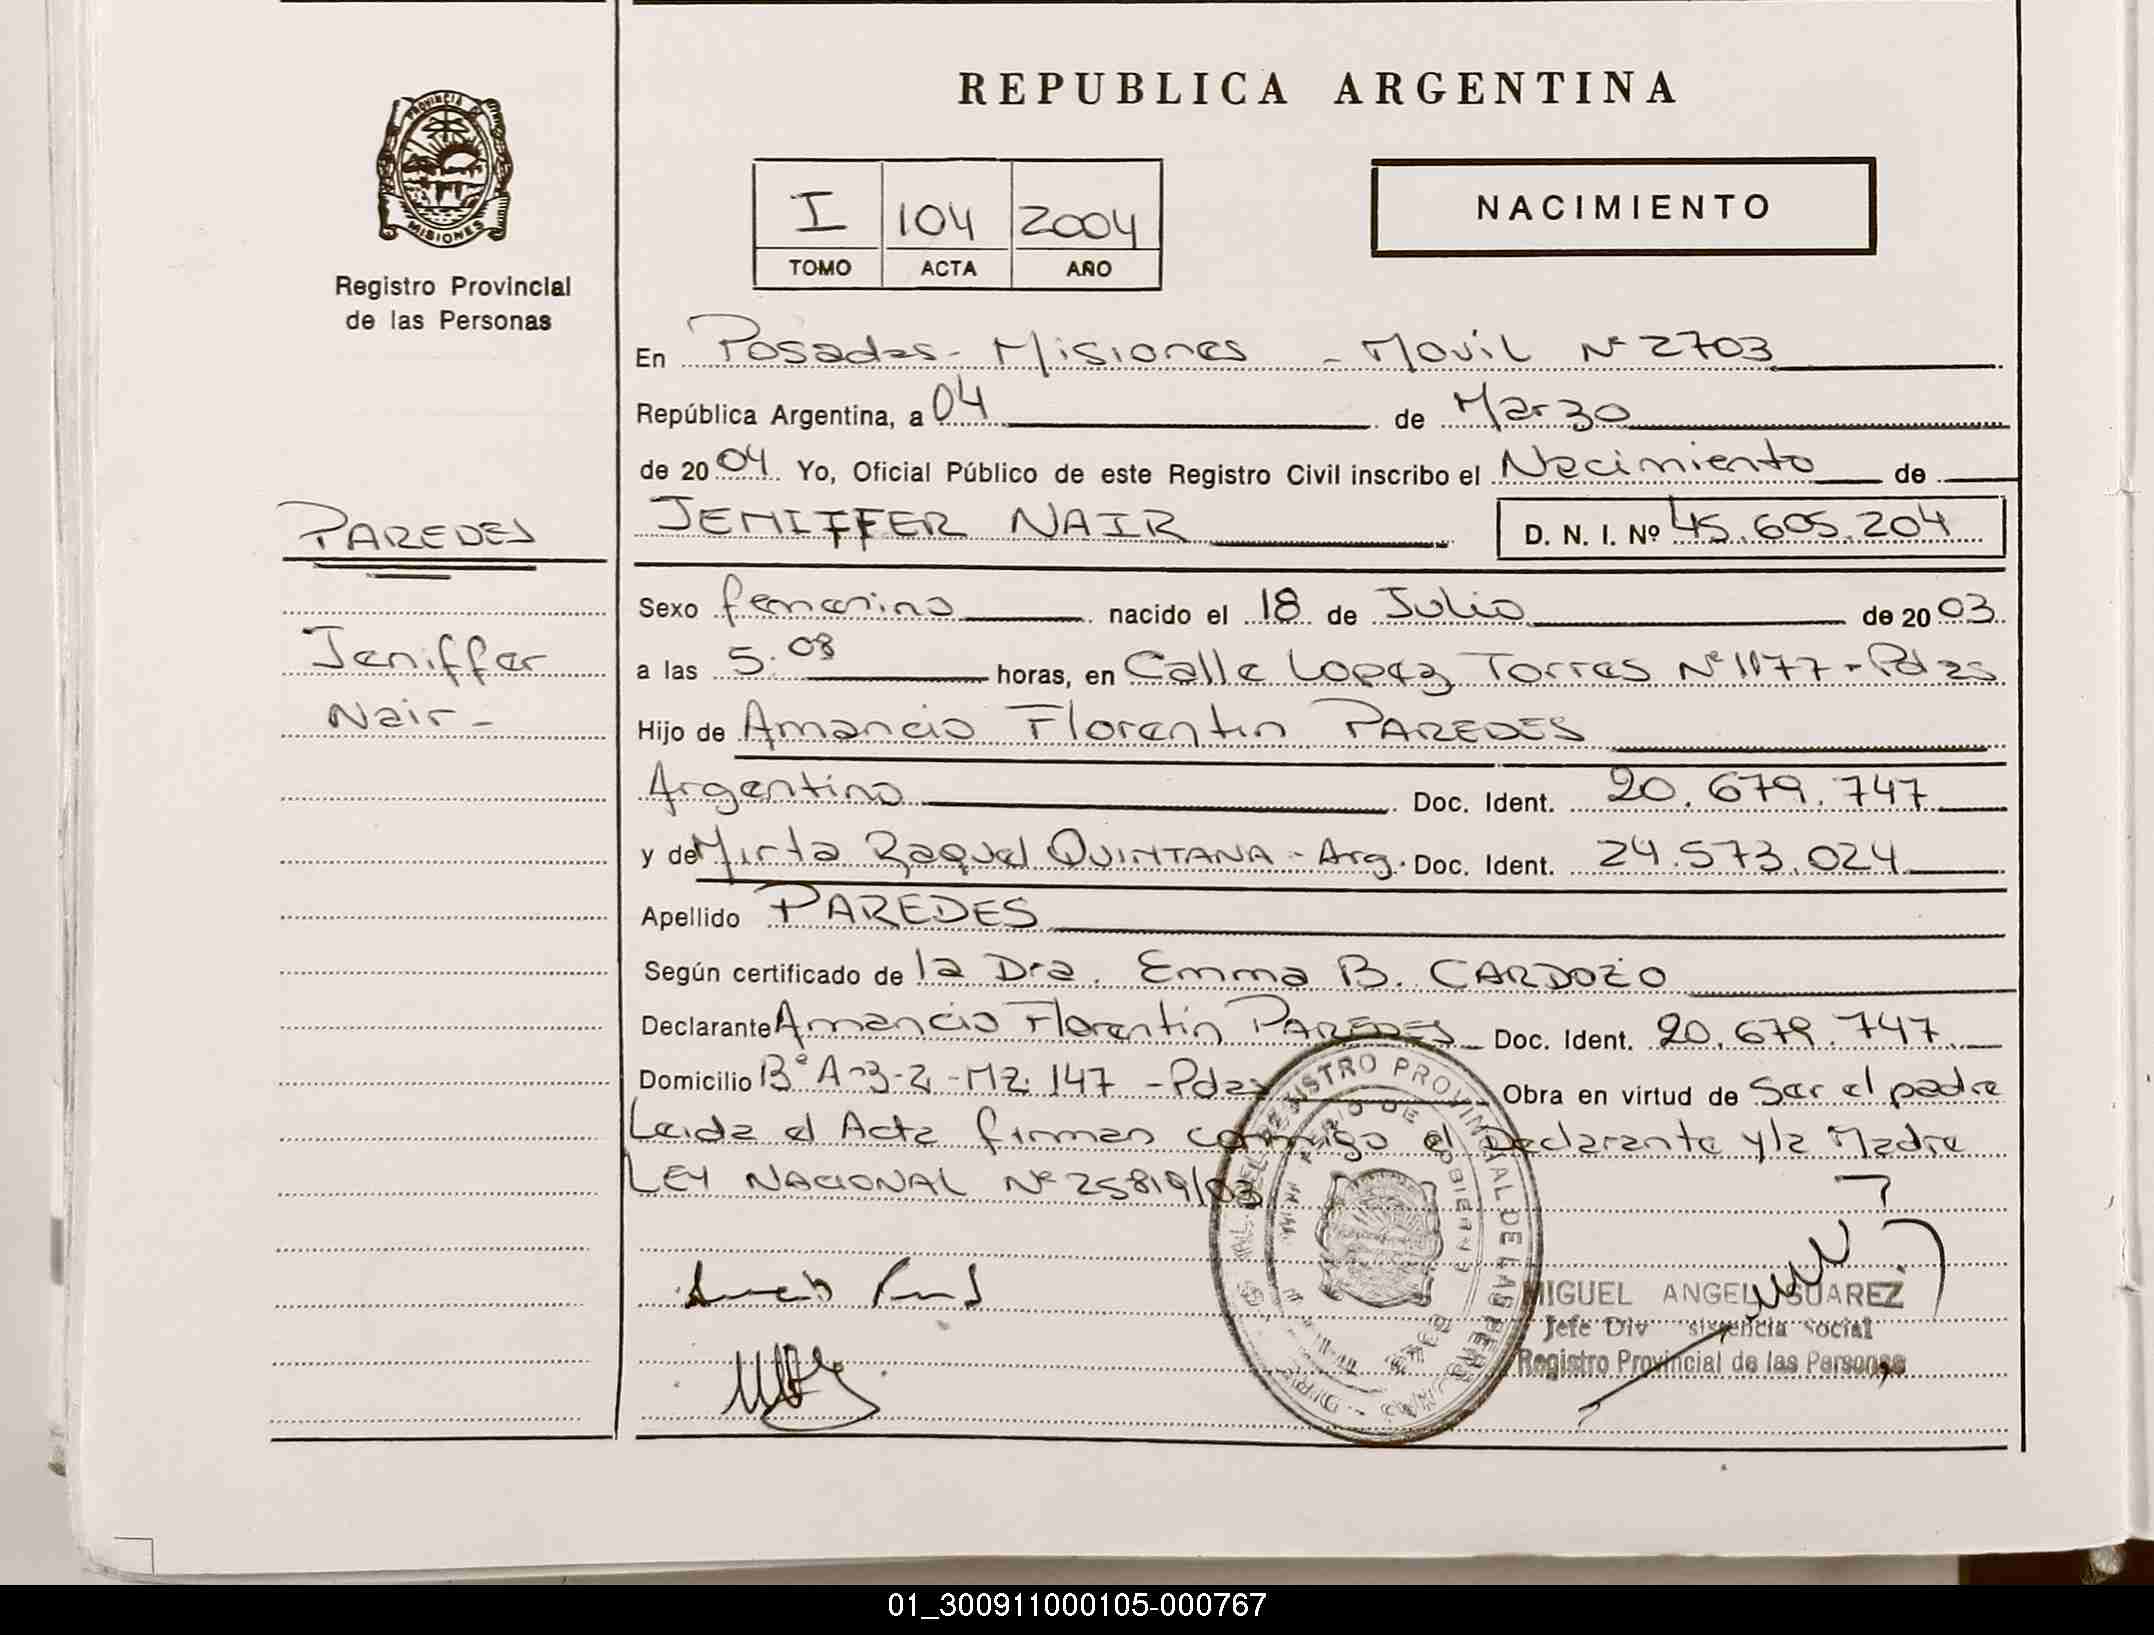 PROVINCIA DE
MISIONES
Registro Provincial
de las Personas
PAREDES
Jeniffer
Nair -
REPUBLICA ARGENTINA
I 104 2004
TOMO ACTA AÑO
NACIMIENTO
En Posadas - Misiones - Movil Nº 2703
República Argentina, a 04 de Marzo
de 2004 Yo, Oficial Público de este Registro Civil inscribo el Nacimiento de
JENIFFER NAIR D. N. I. Nº 45.605.204
Sexo femenino nacido el 18 de Julio de 2003
a las 5:08 horas, en Calle Lopez Torres Nº 1177 - Pdas
Hijo de Amancio Florentin PAREDES
Argentino Doc. Ident. 20.679.747
y de Mirta Raquel QUINTANA - Arg. Doc. Ident. 24.573.024
Apellido PAREDES
Según certificado de la Dra. Emma B. CARDOZO
Declarante Amancio Florentin PAREDES Doc. Ident. 20.679.747
Domicilio Bº A-3-2 - Mz. 147 - Pdas Obra en virtud de Ser el padre
Leida el Acta firman conmigo el Declarante y la Madre
LEY NACIONAL Nº 25819/03
REGISTRO PROVINCIAL DE LAS PERSONAS
MIGUEL ANGEL SUAREZ
Jefe Div Asistencia Social
Registro Provincial de las Personas
01_300911000105-000767